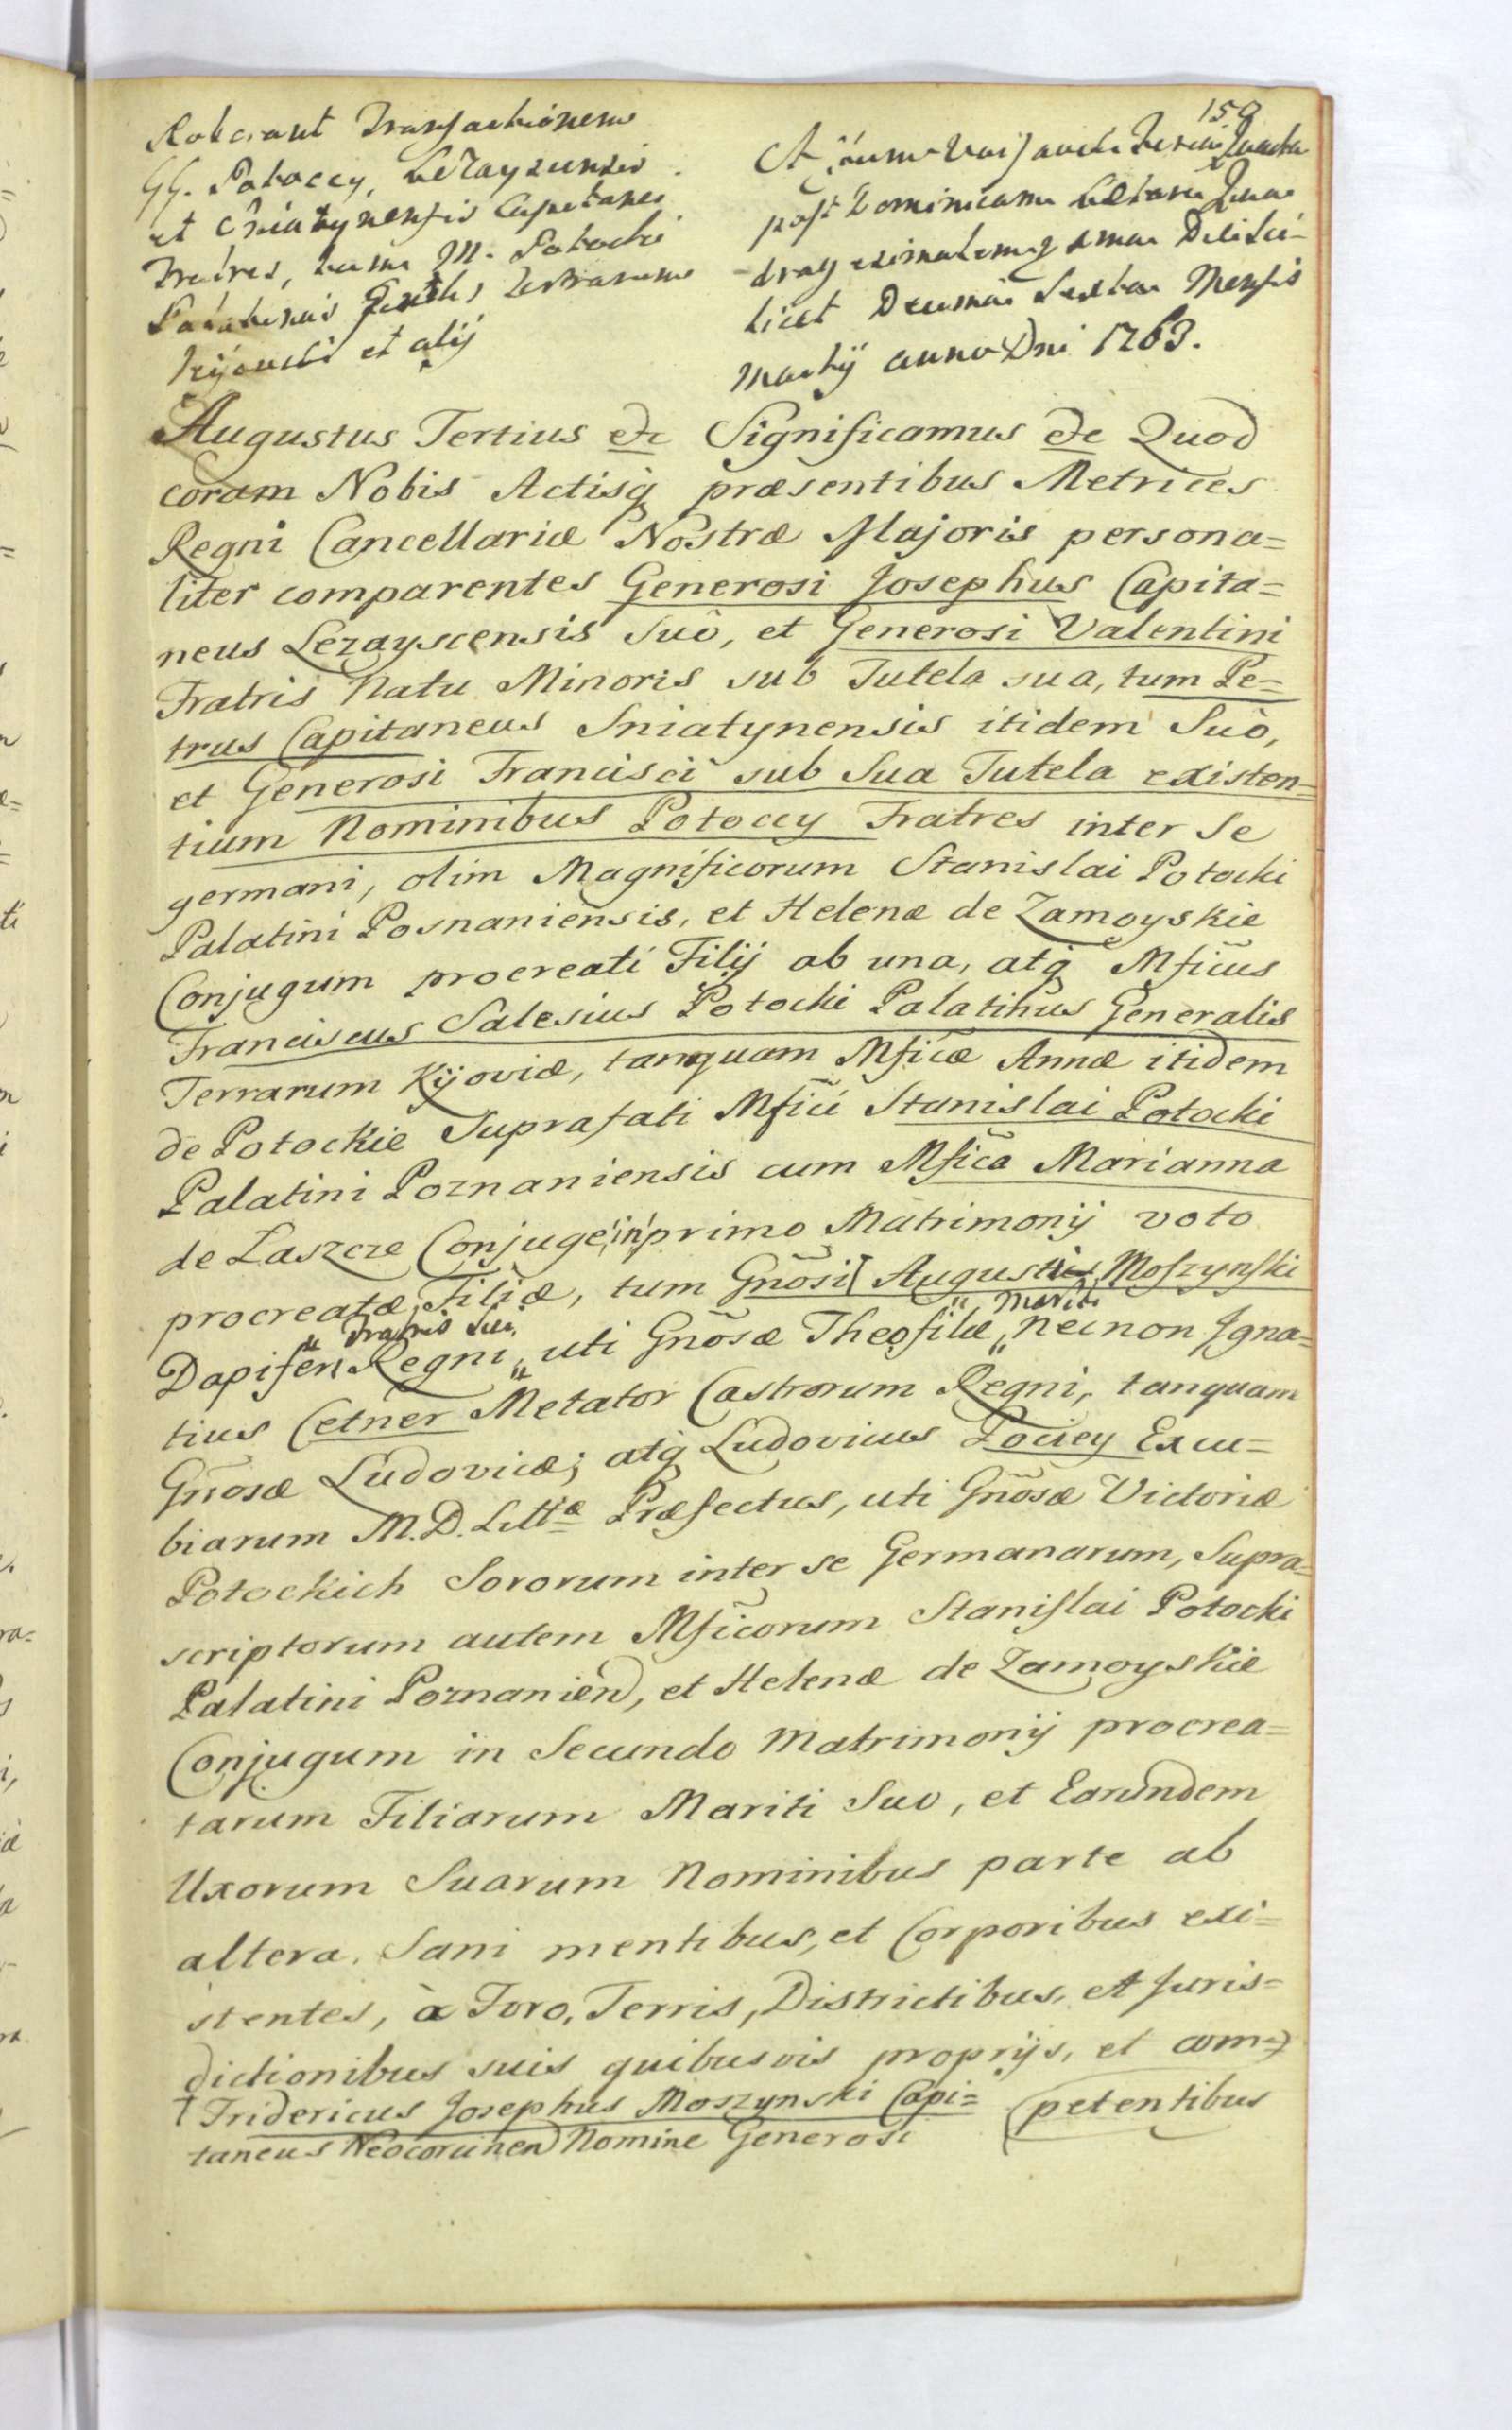 159
Roborant Transactionem
GG. Potoccy, Leżayscensis
et Śniatynensis Capitanei
Fratres, tum M. Potocki
Palatinus Gnrlis Terrarum
Kijoviæ et alij
Actum Varsaviæ Feria Quarta
post Dominicam Lætare Qua-
dragesimalem
licet Decima Sexta Mensis
Martij anno Dni 1763.
Augustus Tertius etc Significamus etc Quod
coram Nobis Actisq præsentibus Metrices
Regni Cancellariæ Nostræ Majoris persona=
liter comparentes Generosi Josephus Capita=
neus Lezayscensis Suô, et Generosi Valentini
Fratris Natu Minoris sub Tutela sua, tum Pe=
trus Capitaneus Sniatynensis itidem Suô,
et Generosi Francisci sub Sua Tutela existen=
tium Nominibus Potoccy Fratres inter Se
germani, olim Magnificorum Stanislai Potocki
Palatini Posnaniensis, et Helenæ de Zamoyskie
Conjugum procreati Filij ab una, atq Mficus
Franciscus Salesius Potocki Palatinus Generalis
Terrarum Kijoviæ, tanquam Mficæ Annæ itidem
de Potockie Suprafati Mfici Stanislai Potocki
Palatini Poznaniensis cum Mfica Marianna
de Laszcze Conjuge in primo Matrimonij voto
procreatæ Filiæ, tum Gnosi [ Augusti Moszynski
Dapiferi Regni „ Fratris Sui, „ uti Gnosæ Theofilæ „ Mariti „ necnon Igna=
tius Cetner Metator Castrorum Regni, tanquam
Gnosæ Ludovicæ; atq Ludovicus Pociey Excu=
biarum M.D. Littæ Præfectus, uti Gnosæ Victoriæ
Potockich Sororum inter se Germanarum, Supra=
scriptorum autem Mficorum Stanislai Potocki
Palatini Poznanien, et Helenæ de Zamoyskie
Conjugum in Secundo Matrimonij procrea=
tarum Filiarum Mariti Suo, et Earundem
Uxorum Suarum Nominibus parte ab
altera. Sani mentibus, et Corporibus exi=
stentes, à Foro, Terris, Districtibus, et Juris=
dictionibus suis quibusvis proprijs, et com=
petentibus
[ Fridericus Josephus Moszynski Capi=
taneus Neocorcinen Nomine Generosi